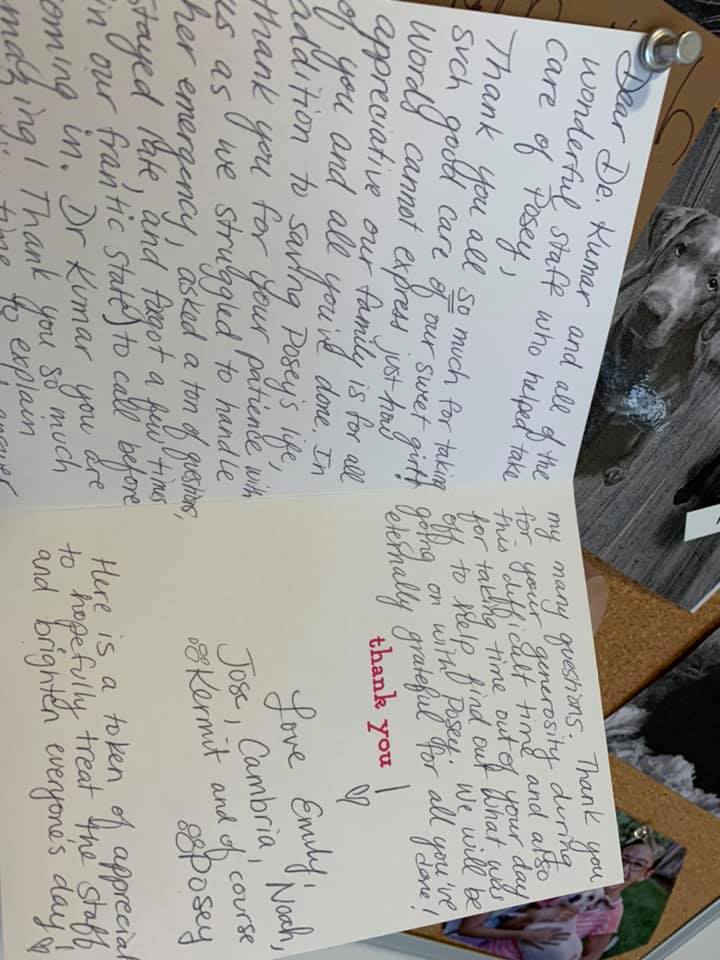 Dear De. Kumar and all of the
wonderful staff who helped take
care of Posey,
Thank you all so much for taking
such good care of our sweet girl!
Words cannot express just how
appreciative our family is for all
of you and all you've done. In
addition to saving Posey's life,
thank you for your patience with
us as we struggled to handle
her emergency, asked a ton of questions,
stayed late, and forgot a few times
in our frantic state) to call before
coming in. Dr Kumar you are
amazing! Thank you so much
time to explain
answer
my many questions. Thank you
for your generosity during
this difficult time and also
for taking time out of your day
off to help find out what was
going on with Posey. We will be
eternally grateful for all you've
done!
thank you!
Love Emily, Noah,
Jose, Cambria,
Kermit and of course
Posey
Here is a token of appreciat
to hopefully treat the staff
and brighten everyone's day!